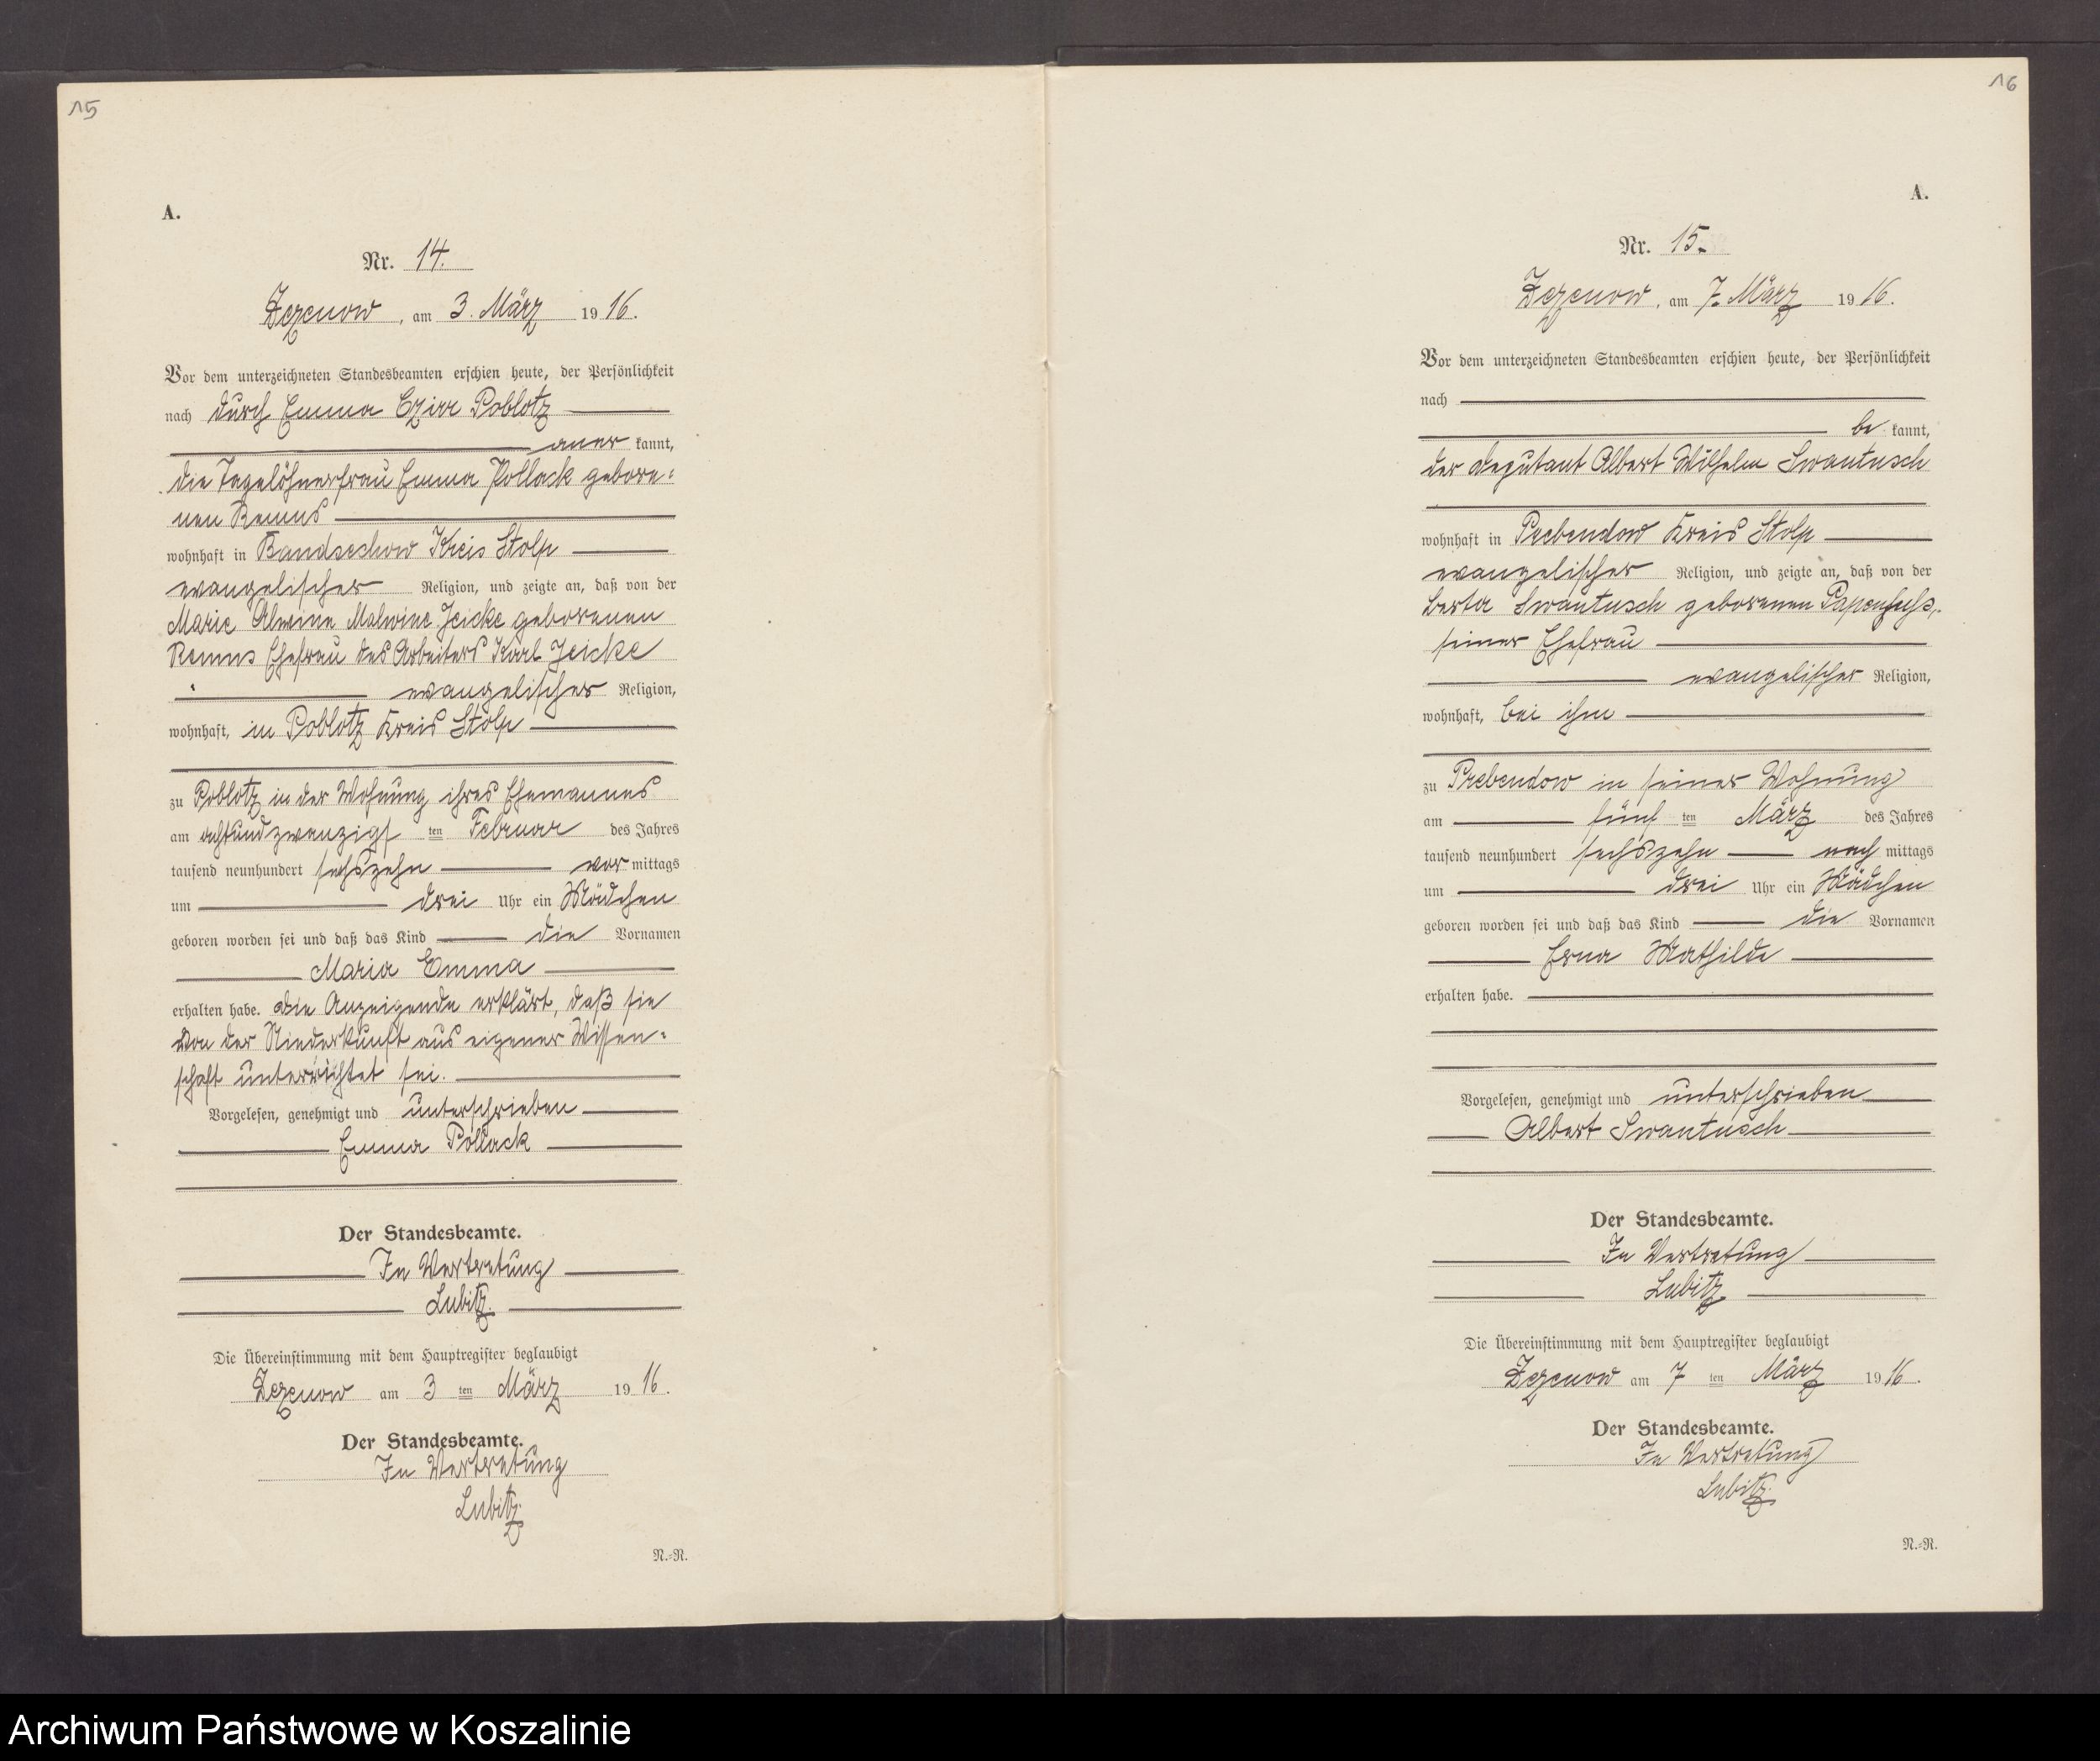 15
A.
Nr. 14.
Zezenow, am 3. März 1916.
Vor dem unterzeichneten Standesbeamten erschien heute, der Persönlichkeit
nach durch Emma Czirr Poblotz
aner kannt,
die Tagelöhnerfrau Emma Pollack gebore-
nen Remus
wohnhaft in Bandsechow Kreis Stolp
evangelischer Religion, und zeigte an, daß von der
Marie Alwine Malwine Jeicke geborenen
Remus Ehefrau des Arbeiters Karl Jeicke
evangelischer Religion,
wohnhaft, in Poblotz Kreis Stolp
zu Poblotz in der Wohnung ihres Ehemannes
am achtundzwanzigs ten Februar des Jahres
tausend neunhundert sechszehn vor mittags
um drei Uhr ein Mädchen
geboren worden sei und daß das Kind die Vornamen
Maria Emma
erhalten habe. Die Anzeigende erklärt, daß sie
von der Niederkunft aus eigener Wissen-
schaft unterrichtet sei.
Vorgelesen, genehmigt und unterschrieben
Emma Pollack
Der Standesbeamte.
In Vertretung
Lubitz.
Die Übereinstimmung mit dem Hauptregister beglaubigt
Zezenow am 3 ten März 1916.
Der Standesbeamte.
In Vertretung
Lubitz.
N.-R.
16
A.
Nr. 15.
Zezenow, am 7. März 1916.
Vor dem unterzeichneten Standesbeamten erschien heute, der Persönlichkeit
nach
be kannt,
der Deputant Albert Wilhelm Swantusch
wohnhaft in Prebendow Kreis Stolp
evangelischer Religion, und zeigte an, daß von der
Berta Swantusch geborenen Papenfuß,
seiner Ehefrau
evangelischer Religion,
wohnhaft, bei ihm
zu Prebendow in seiner Wohnung
am fünf ten März des Jahres
tausend neunhundert sechszehn nach mittags
um drei Uhr ein Mädchen
geboren worden sei und daß das Kind die Vornamen
Erna Mathilde
erhalten habe.
Vorgelesen, genehmigt und unterschrieben
Albert Swantusch
Der Standesbeamte.
In Vertretung
Lubitz
Die Übereinstimmung mit dem Hauptregister beglaubigt
Zezenow am 7 ten März 1916.
Der Standesbeamte.
In Vertretung
Lubitz.
N.-R.
Archiwum Państwowe w Koszalinie